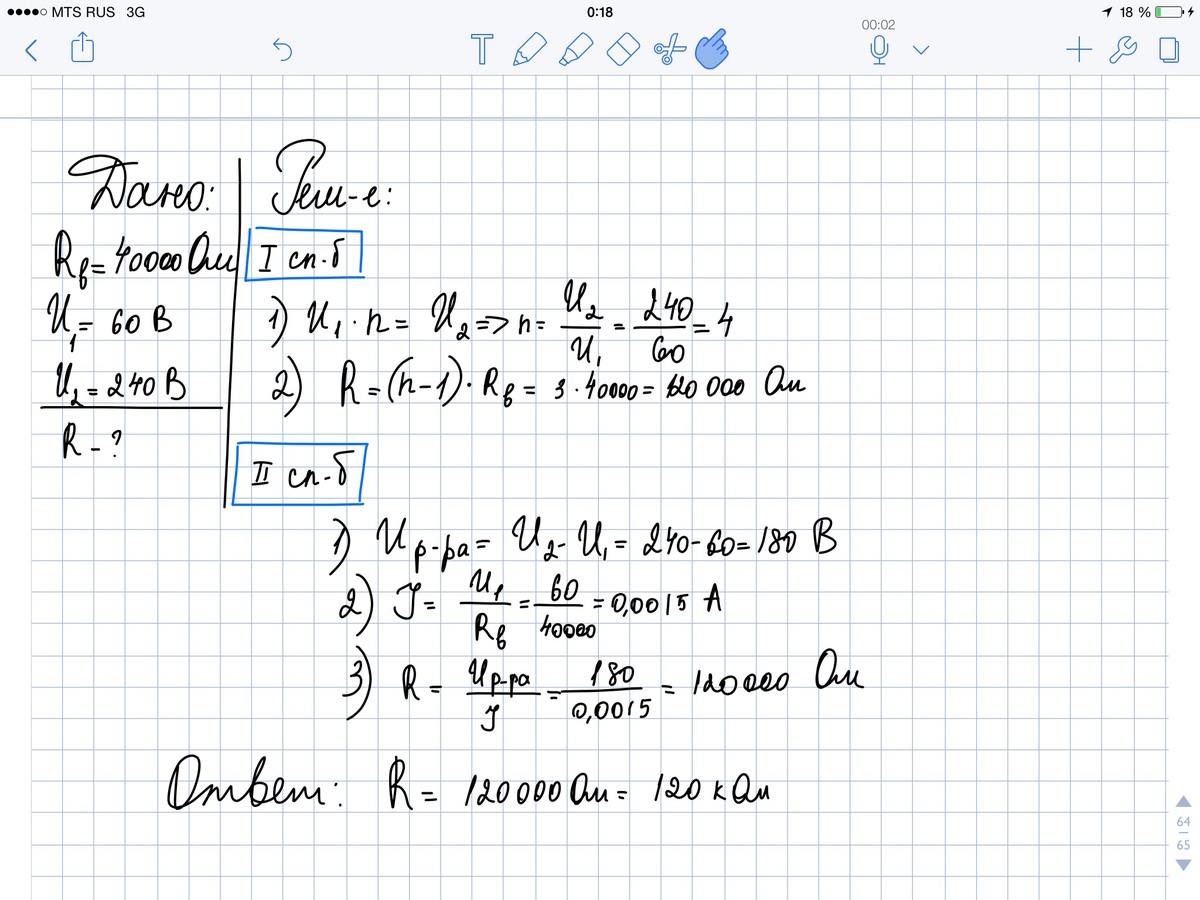 MTS RUS 3G
0:18
18 %
00:02
Дано:
Rв = 40000 Ом
U₁ = 60 В
U₂ = 240 В
R - ?
Реш-е:
I сп-б
1) U₁ · n = U₂ => n = U₂/U₁ = 240/60 = 4
2) R = (n-1) · Rв = 3 · 40000 = 120 000 Ом
II сп-б
1) Uр-ра = U₂ - U₁ = 240 - 60 = 180 В
2) J = U₁/Rв = 60/40000 = 0,0015 А
3) R = Uр-ра/J = 180/0,0015 = 120000 Ом
Ответ: R = 120000 Ом = 120 кОм
64
65